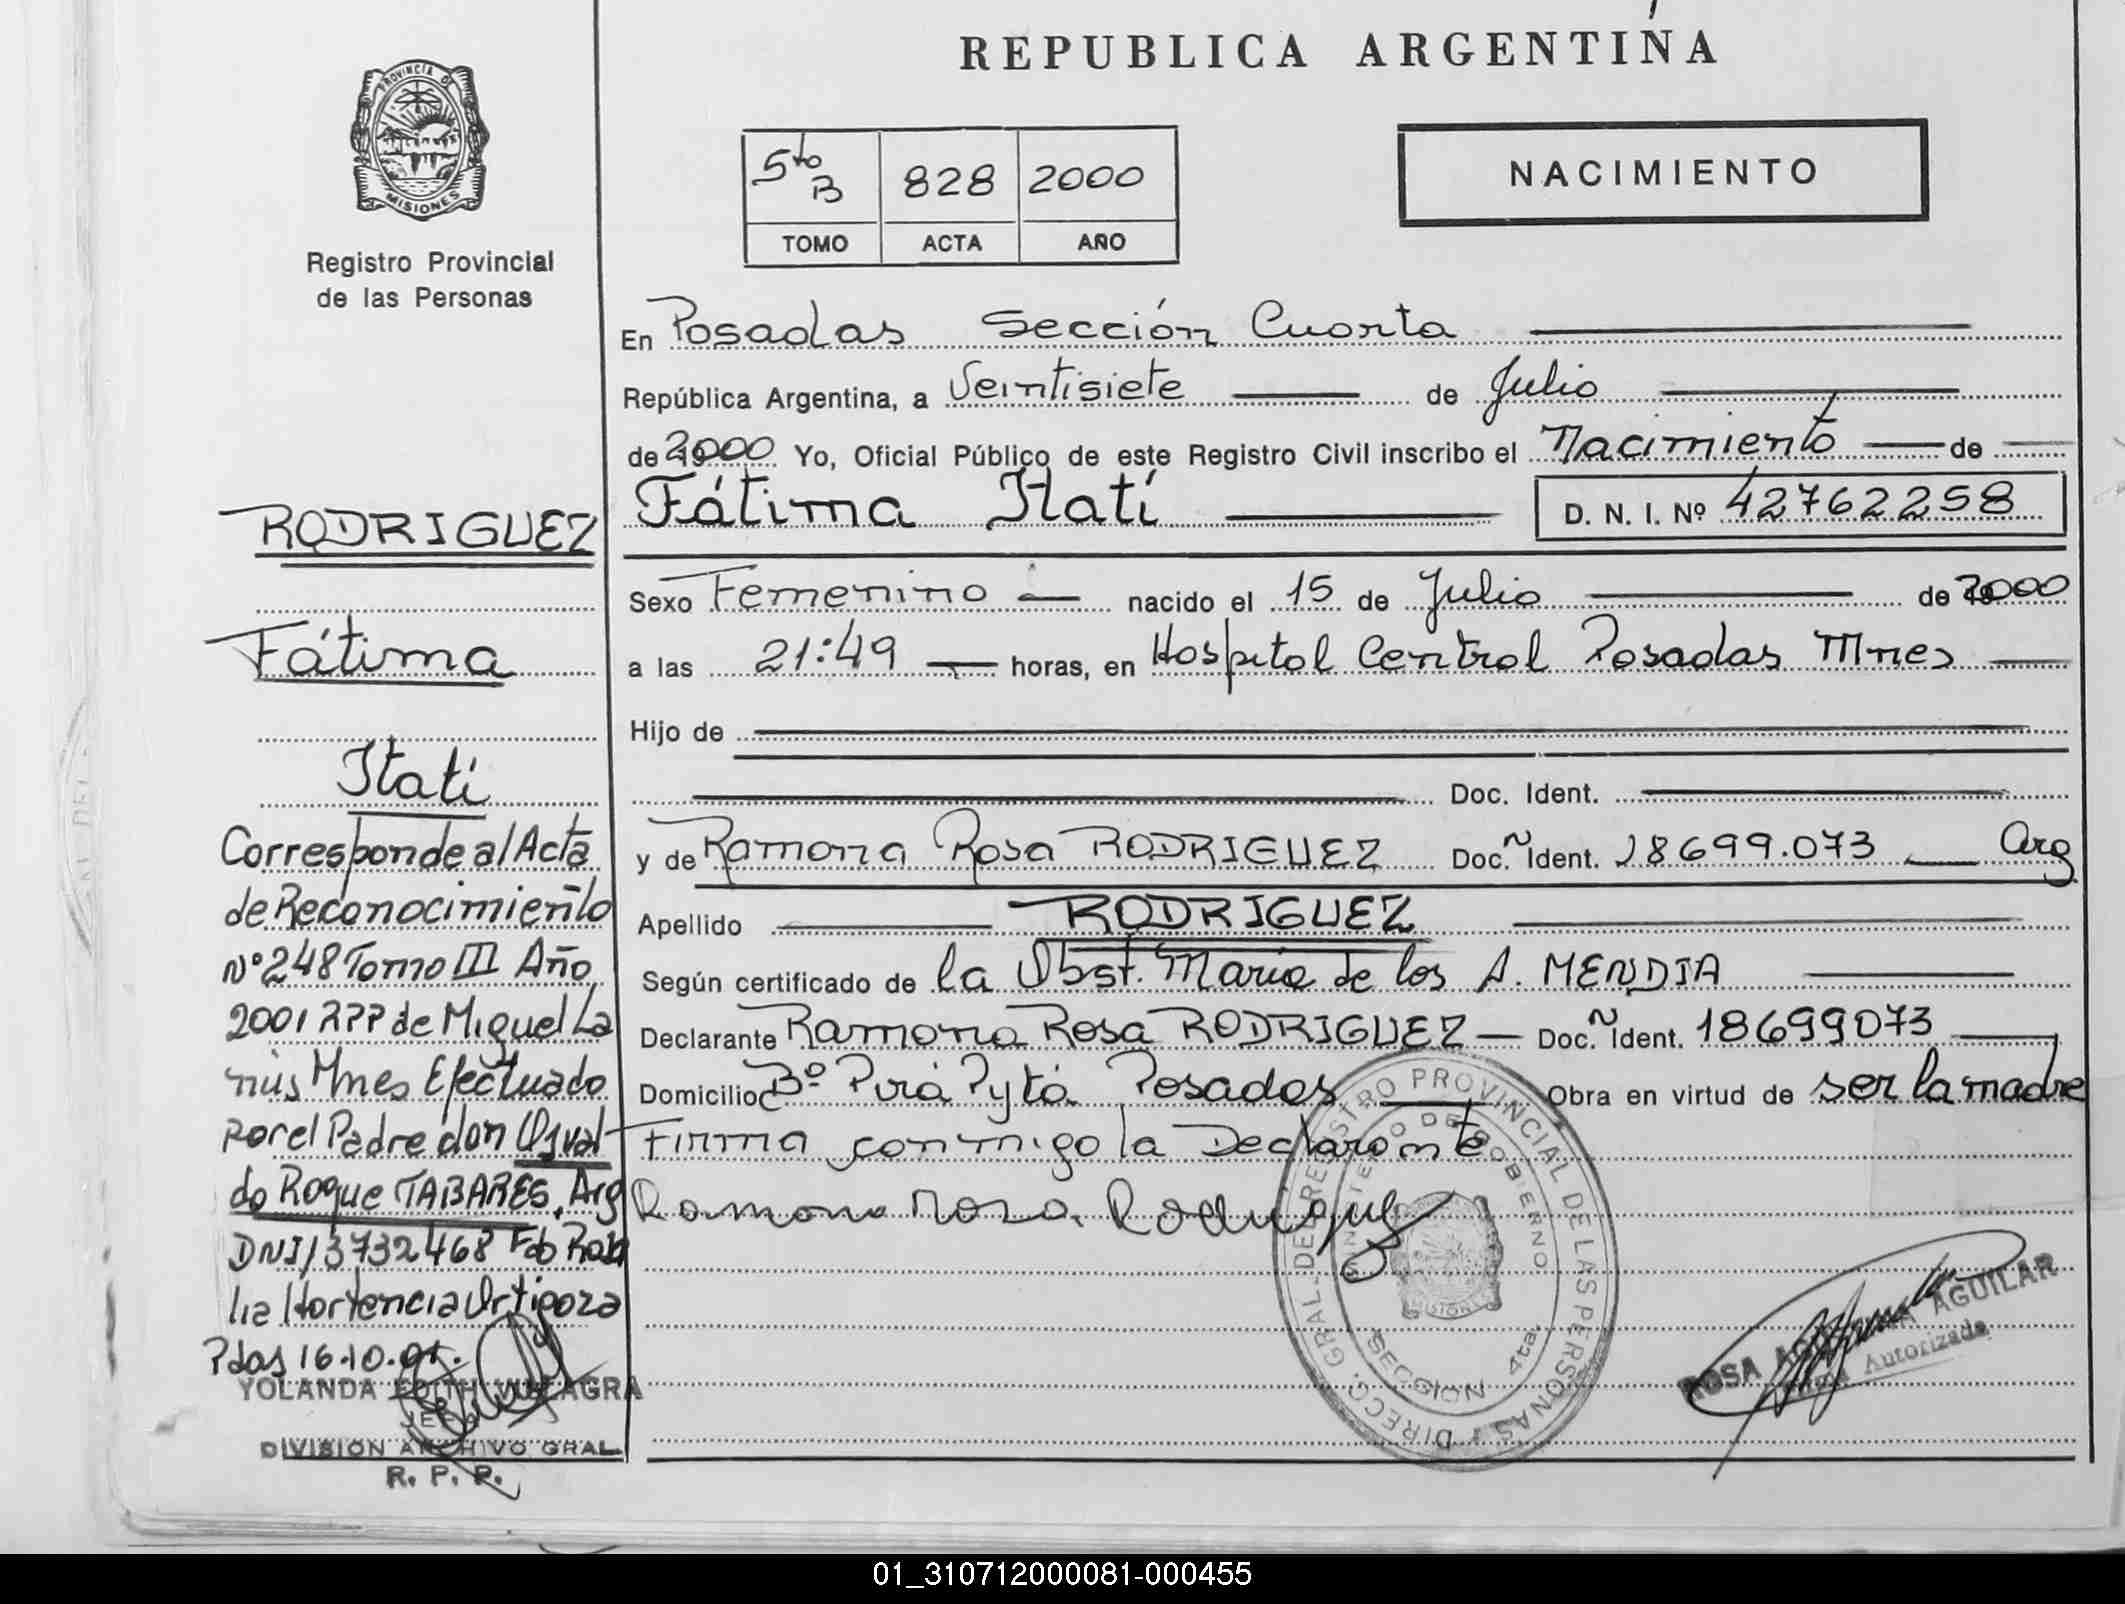 REPUBLICA ARGENTINA
PROVINCIA DE
MISIONES
Registro Provincial
de las Personas
5to B 828 2000
TOMO ACTA AÑO
NACIMIENTO
En Posadas Sección Cuarta
República Argentina, a Veintisiete de Julio
de 2000 Yo, Oficial Público de este Registro Civil inscribo el Nacimiento de
Fátima Itatí D. N. I. Nº 42762258
Sexo Femenino nacido el 15 de Julio de 2000
a las 21:49 horas, en Hospital Central Posadas Mnes
Hijo de
Doc. Ident.
y de Ramona Rosa RODRIGUEZ Doc. Ident. 18699.073 Arg
Apellido RODRIGUEZ
Según certificado de la Obst. María de los A. MENDIA
Declarante Ramona Rosa RODRIGUEZ Doc. Ident. 18699073
Domicilio Bº Pirá Pytá Posadas Obra en virtud de ser la madre
Firma conmigo la Declarante
Ramona Rosa Rodriguez
RODRIGUEZ
Fátima
Itatí
Corresponde al Acta
de Reconocimiento
Nº 248 Tomo III Año
2001 RPP de Miguel La
nús Mnes Efectuado
por el Padre don Osval
do Roque TABARES. Arg
DNI 13732468 Fdo Rosa
lia Hortencia Ortigoza
Pdas 16.10.01.
YOLANDA EDITH VILLAGRA
JEFA
DIVISION ARCHIVO GRAL
R. P. P.
DIRECC. GRAL. DEL REGISTRO PROVINCIAL DE LAS PERSONAS
MINISTERIO DE GOBIERNO
MISIONES
SECCION 4ta.
ROSA AGUILAR
Firma Autorizada
01_310712000081-000455